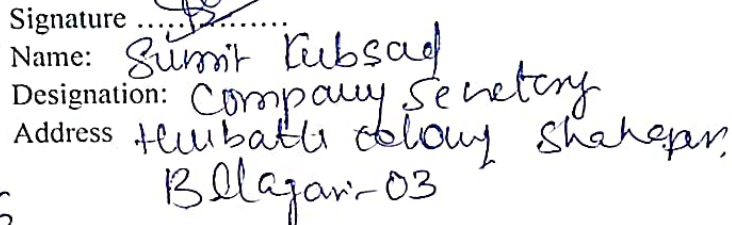 Signature ..............
Name: Sumit Kubsad
Designation: Company Secretary
Address colony Shahapur,
Belagavi-03